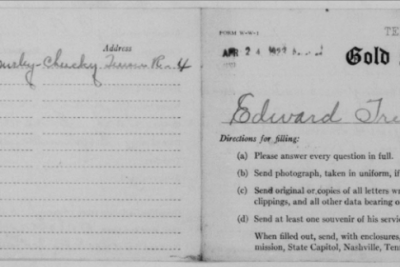 Address
Chucky, Tenn R. 4
FORM W-W-1
TE
APR 24 1922
Gold
Edward Tre
Directions for filling:
(a) Please answer every question in full.
(b) Send photograph, taken in uniform, if
(c) Send original or copies of all letters w
clippings, and all other data bearing o
(d) Send at least one souvenir of his servic
When filled out, send, with enclosures,
mission, State Capitol, Nashville, Ten